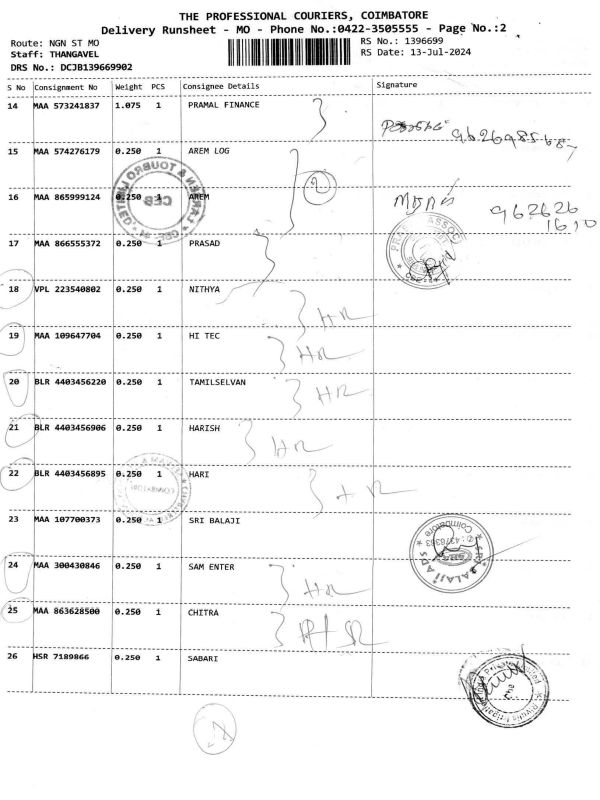 THE PROFESSIONAL COURIERS, COIMBATORE
Delivery Runsheet - MO - Phone No.:0422-3505555 - Page No.:2
Route: NGN ST MO RS No.: 1396699
Staff: THANGAVEL RS Date: 13-Jul-2024
DRS No.: DCJB139669902
S No Consignment No Weight PCS Consignee Details Signature
14 MAA 573241837 1.075 1 PRAMAL FINANCE
9626985687
15 MAA 574276179 0.250 1 AREM LOG
2
16 MAA 865999124 0.250 1 AREM
962626
1610
17 MAA 866555372 0.250 1 PRASAD
18 VPL 223540802 0.250 1 NITHYA
HR
19 MAA 109647704 0.250 1 HI TEC
HR
20 BLR 4403456220 0.250 1 TAMILSELVAN
HR
21 BLR 4403456906 0.250 1 HARISH
HR
22 BLR 4403456895 0.250 1 HARI
HR
23 MAA 107700373 0.250 1 SRI BALAJI
SRI BALAJI ADS
Coimbatore
24 MAA 300430846 0.250 1 SAM ENTER
HR
25 MAA 863628500 0.250 1 CHITRA
HR
26 HSR 7189866 0.250 1 SABARI